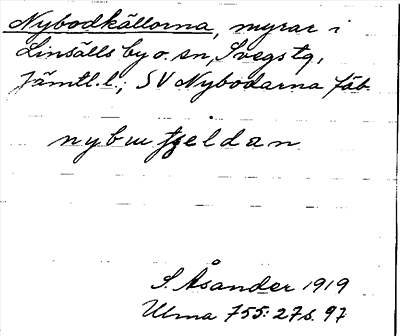 Nybodkällorna, myrar i
Linsälls by o. sn, Svegs tg,
Jämtl. l.; SV Nybodarna fäb.
S. Åsander 1919
Ulma 755:27 s. 97